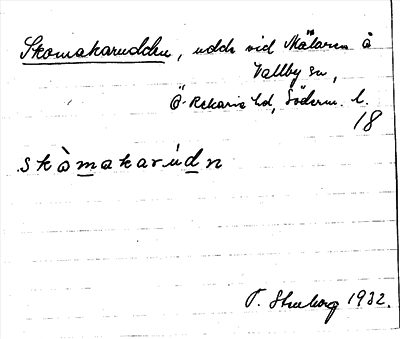 Skomakarudden, udde vid Mälaren å
Vallby sn,
Ö. Rekarne hd, Söderm. l.
18
skòmakarúdn
T. Stenborg 1932.